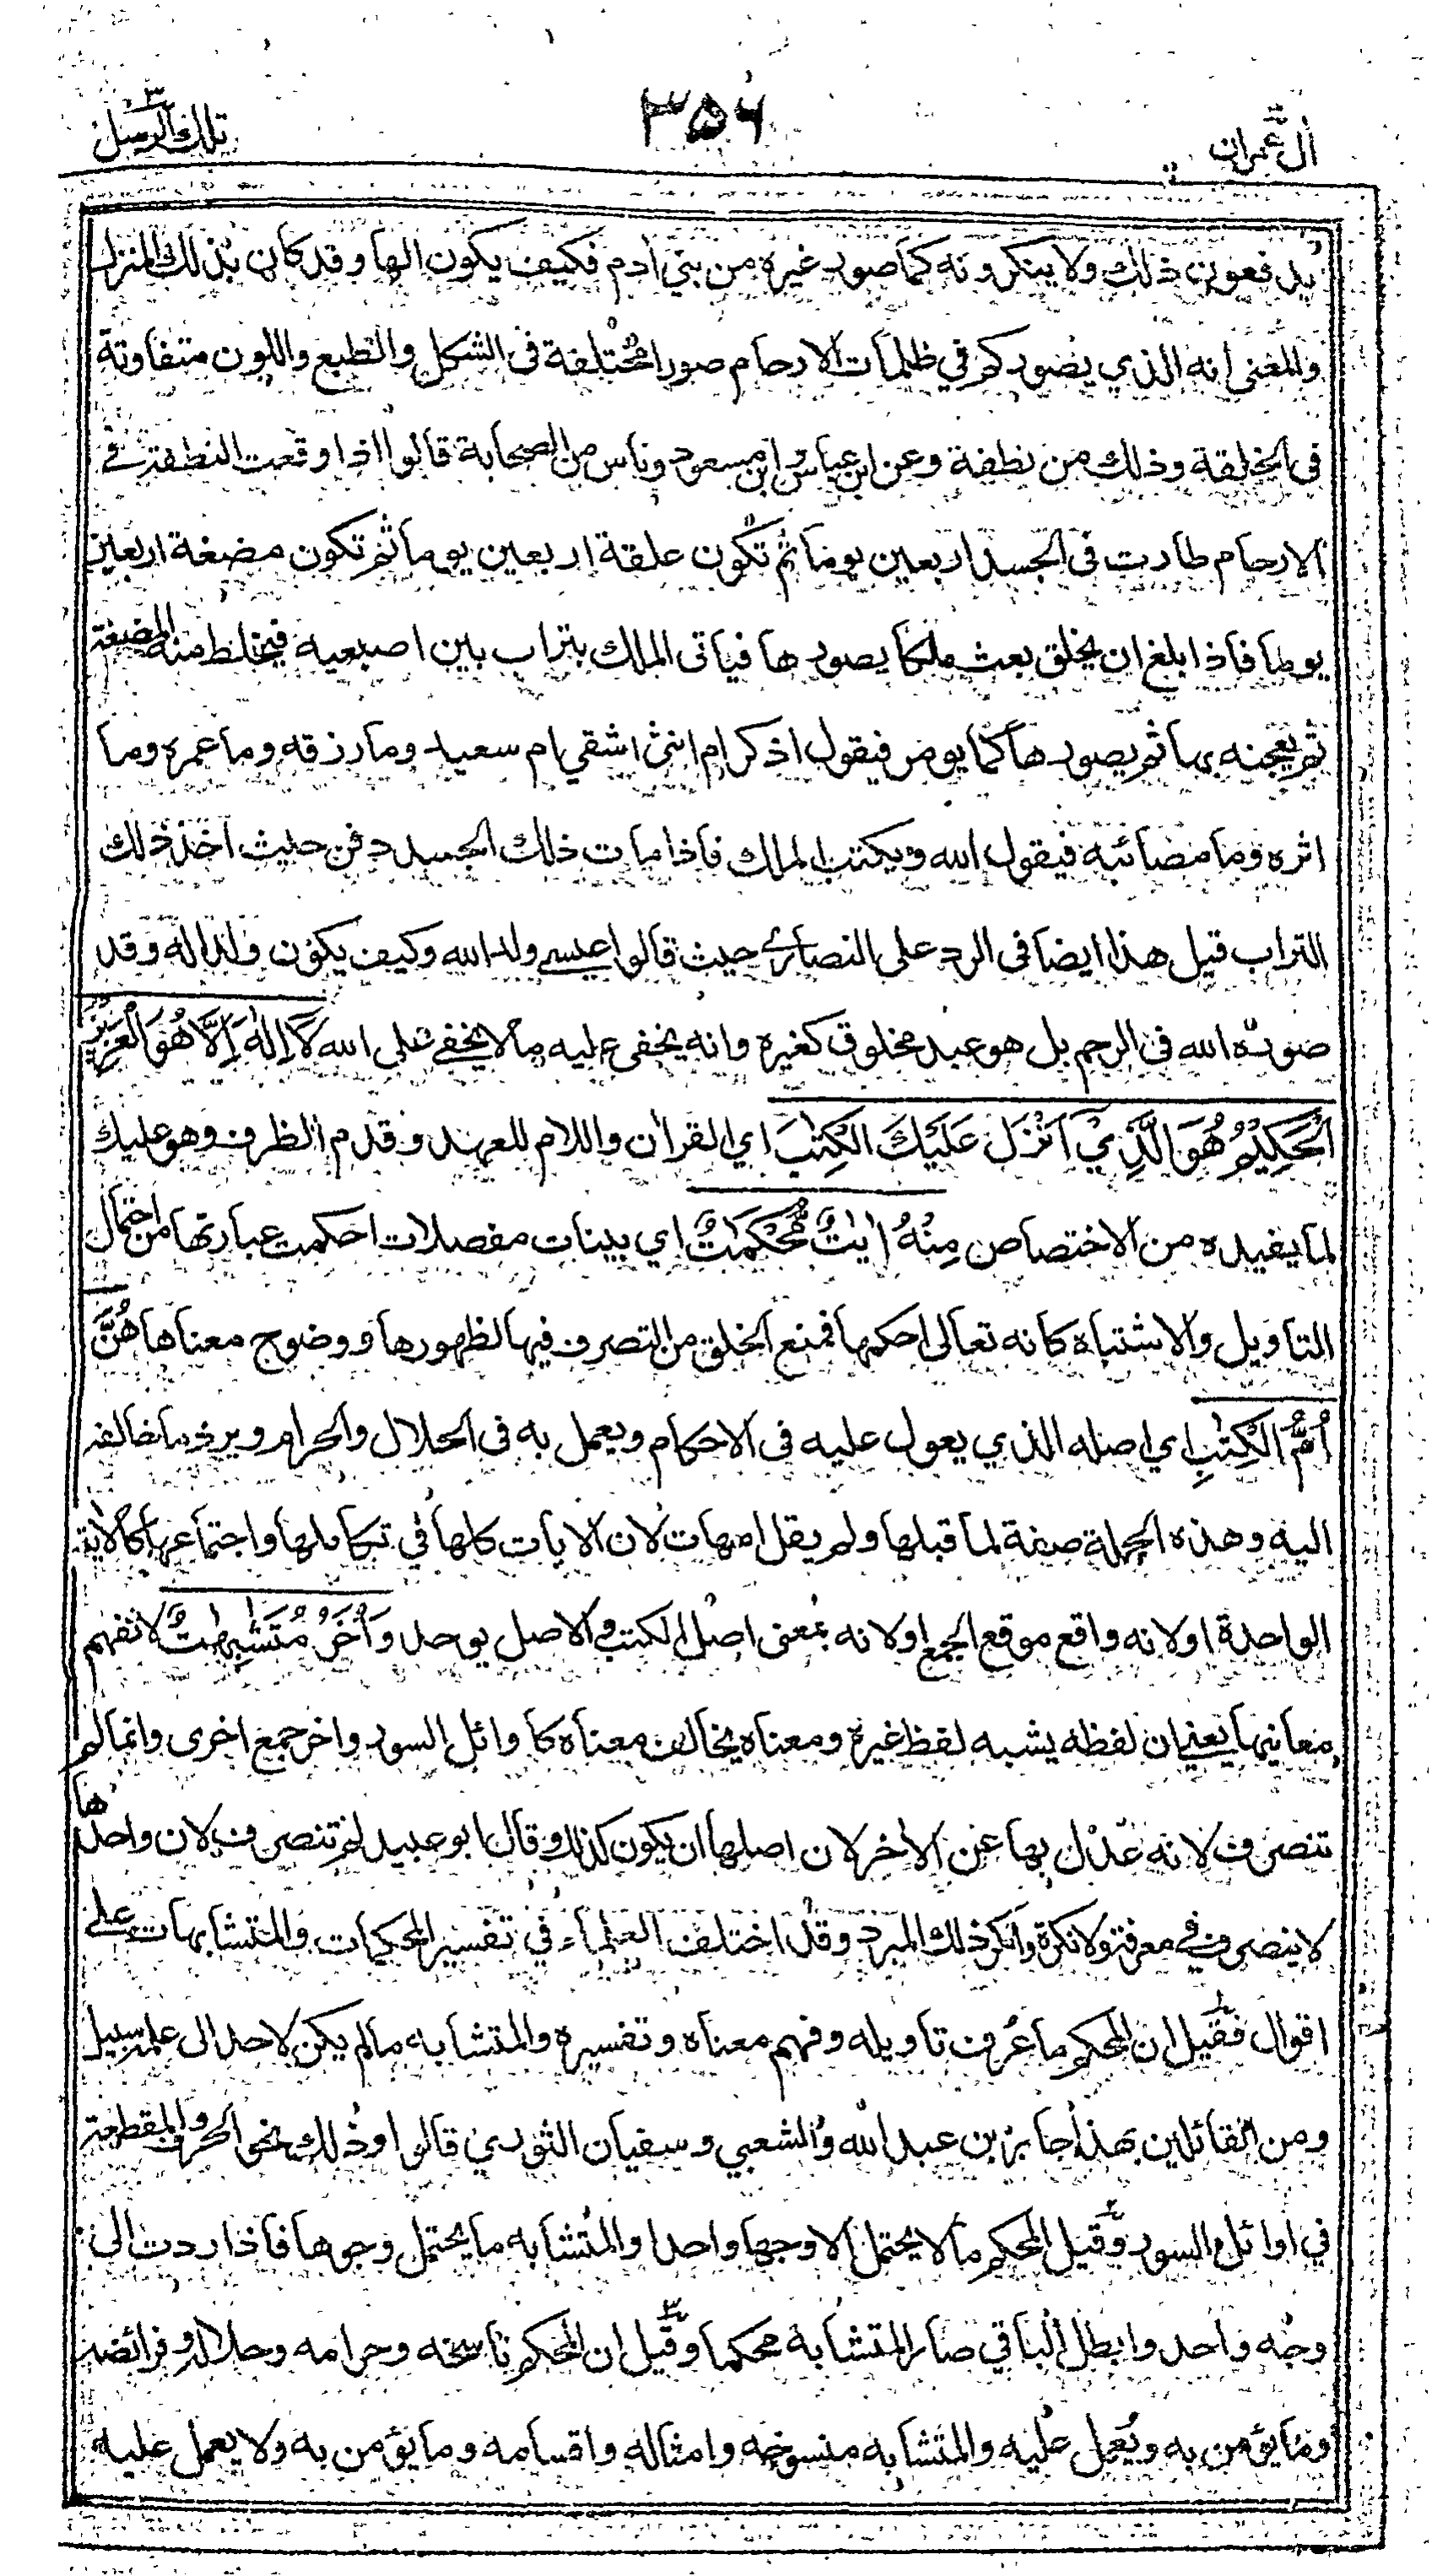 اٰل عمران ٣
٣٥٦
تلك الرسل ٣
يدفعون ذلك ولا ينكرونه كما صور غيره من بني ادم فكيف يكون الها وقد كان بذلك المنزل
والمعنى انه الذي يصوركم في ظلمات الارحام صورا مختلفة فى الشكل والطبع واللون متفاوتة
فى الخلقة وذلك من نطفة وعن ابن عباس وابن مسعود وناس من الصحابة قالوا اذا وقعت النطفة في
الارحام طارت فى الجسد اربعين يوما ثم تكون علقة اربعين يوما ثم تكون مضغة اربعين
يوما فاذا بلغ ان يخلق بعث ملكا يصورها فياتى الملك بتراب بين اصبعيه فيخلط منه المضغة
ثم يعجنه بها ثم يصورها كما يومر فيقول اذكر ام انثى اشقي ام سعيد وما رزقه وما عمره وما
اثره وما مصائبه فيقول الله ويكتب الملك فاذا مات ذلك الجسد دفن حيث اخذ ذلك
التراب قيل هذا ايضا فى الرد على النصارے حيث قالوا عيسے ولد الله وكيف يكون ولدا له وقد
صوره الله فى الرحم بل هو عبد مخلوق كغيره وانه يخفى عليه ما لا يخفے على الله لَآ اِلٰهَ اِلَّا هُوَ الْعَزِيْزُ
الْحَكِيْمُ هُوَ الَّذِيْٓ اَنْزَلَ عَلَيْكَ الْكِتٰبَ اي القران واللام للعهد وقدم الظرف وهو عليك
لما يفيده من الاختصاص مِنْهُ اٰيٰتٌ مُّحْكَمٰتٌ اي بينات مفصلات احكمت عبارتها من احتمال
التاويل والاشتباه كانه تعالى احكمها فمنع الخلق من التصرف فيها لظهورها ووضوح معناها هُنَّ
اُمُّ الْكِتٰبِ اي اصله الذي يعول عليه فى الاحكام ويعمل به فى الحلال والحرام ويرد ما خالفه
اليه وهذه الجملة صفة لما قبلها ولم يقل امهات لان الايات كلها في تكاملها واجتماعها كالاية
الواحدة او لانه واقع موقع الجمع او لانه بمعنى اصل الكتب والاصل يوحد وَاُخَرُ مُتَشٰبِهٰتٌ لا تفهم
معانيها يعنے ان لفظه يشبه لفظ غيره ومعناه يخالف معناه كاوائل السور واخر جمع اخرى وانما لم
تنصرف لانه عدل بها عن الاخر لان اصلها ان يكون كذلك وقال ابو عبيد لم تنصرف لان واحدها
لا ينصرف في معرفة ولا نكرة وانكر ذلك المبرد وقد اختلف العلماء في تفسير المحكمات والمتشابهات علے
اقوال فقيل ان المحكم ما عرف تاويله وفهم معناه وتفسيره والمتشابه ما لم يكن لاحد الى علمه سبيل
ومن القائلين بهذا جابر بن عبد الله والشعبي وسفيان الثوري قالوا وذلك نحو الحروف المقطعة
في اوائل السور وقيل المحكم ما لا يحتمل الا وجها واحدا والمتشابه ما يحتمل وجوها فاذا ردت الى
وجه واحد وابطل الباقي صار المتشابه محكما وقيل ان المحكم ناسخه وحرامه وحلاله وفرائضه
وما يؤمن به ويعمل عليه والمتشابه منسوخه وامثاله واقسامه وما يؤمن به ولا يعمل عليه